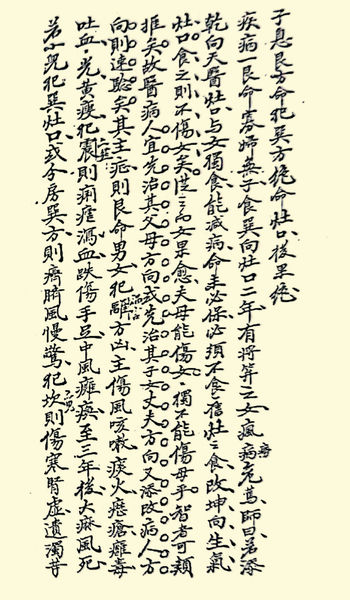 子息艮方命犯巽方絕命灶口後果絕
疾病一艮命寡婦無子食巽向灶口二年有將笄之女瘋病危篤師曰若添
乾向天醫灶口与女獨食能減病命未必保必須不食舊灶之食改坤向生氣
灶口食之則不傷女矣後之女果愈夫母能傷女獨不能傷母乎智者可類
推矣故醫病人宜先治其父母方向或先治其子女丈夫方向又添改病人方
向則速驗矣其主症則艮命男女犯離方凶主傷風咳嗽痰火瘡癰毒
吐血黃瘦犯震則痢瘧瀉血跌傷手足中風癱瘓至三年後大麻風死
若小兒犯巽灶口或房巽方則疳臍風慢驚犯坎則傷寒腎虛遺濁等